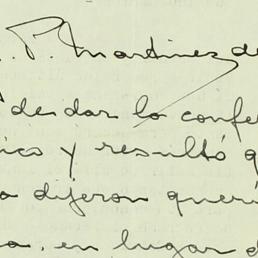 . P. Martinez de
de dar la confe
ico y resultó q
a dijeron querí
a, en lugar d